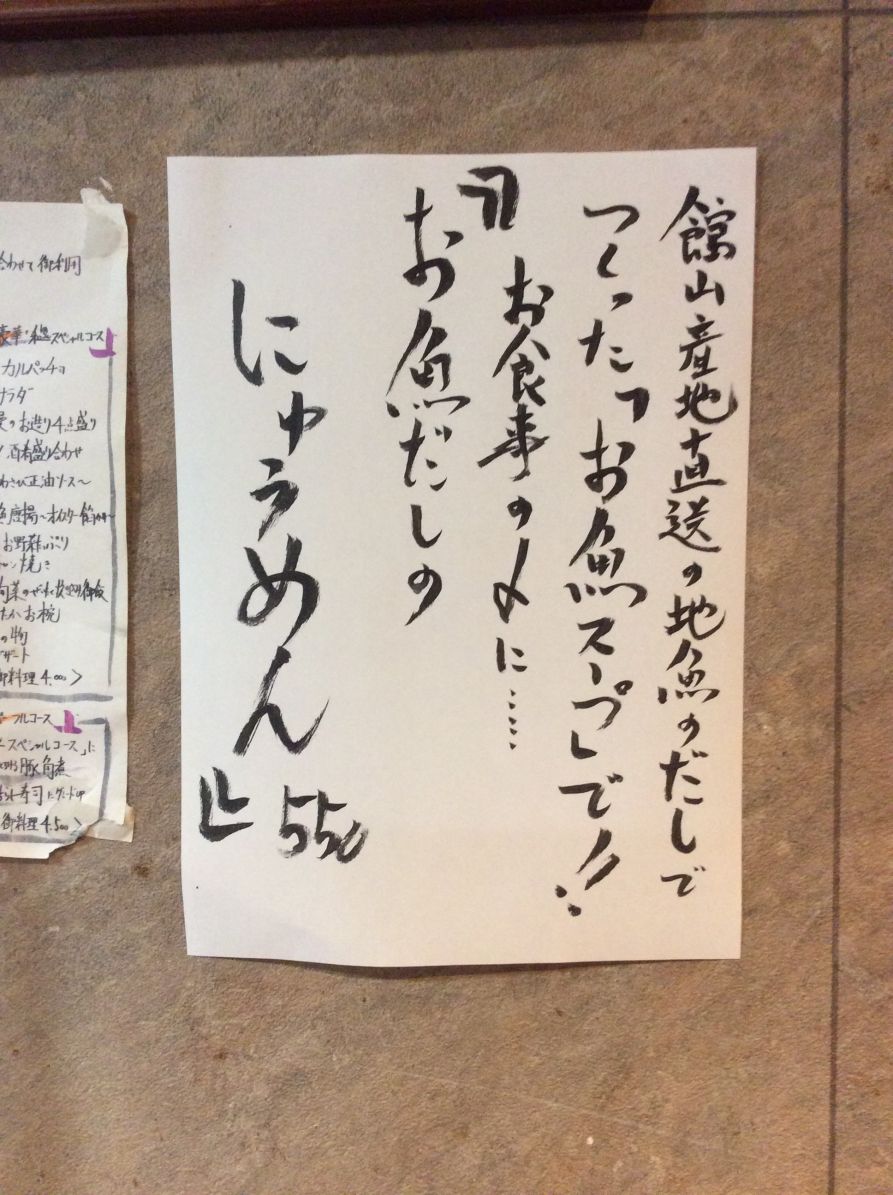 館山産地直送の地魚のだしで
つくった「お魚スープ」で!!
お食事の〆に……
『お魚だしの
にゅうめん』
550
合わせて御利用
豪華・極スペシャルコース
カルパッチョ
サラダ
のお造り4点盛り
盛り合わせ
わさび正油ソース〜
お野菜
焼き
お椀
の物
デザート
御料理4.000>
フルコース
スペシャルコース」に
豚角煮
寿司に
御料理4.500>